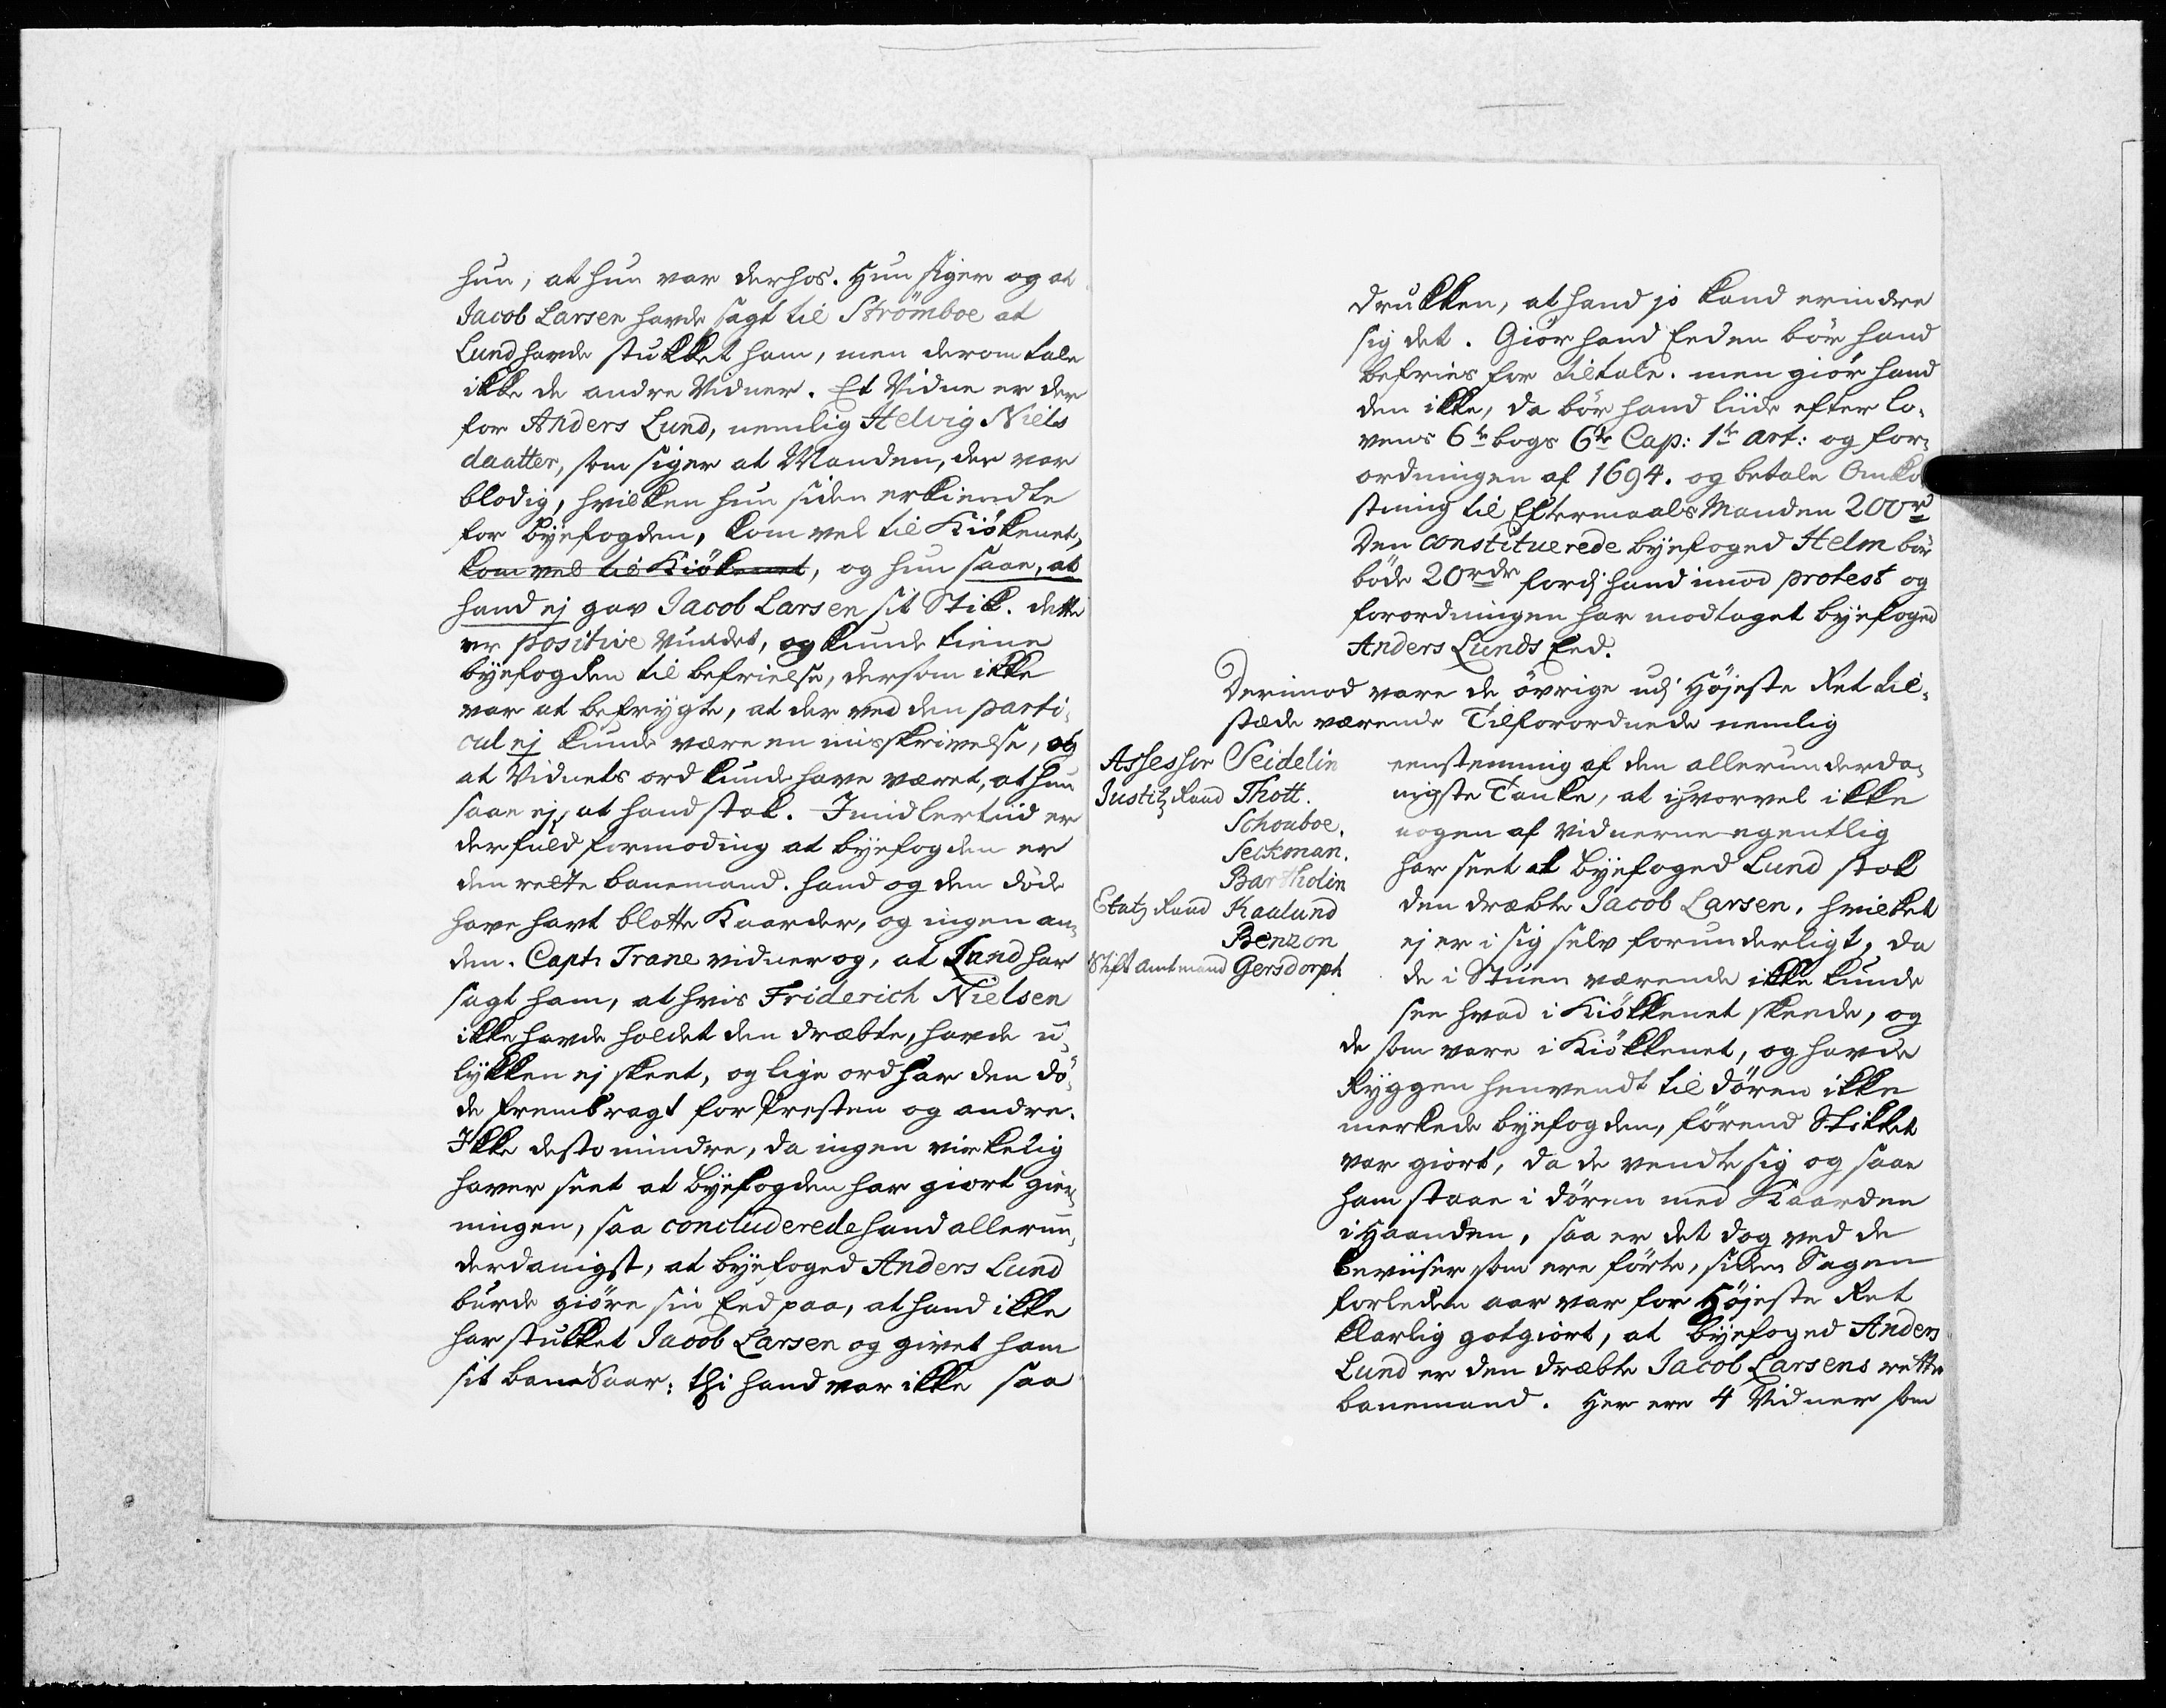 hun, at hun var derhos. Hun siger og at
Jacob Larsen havde sagt til Strömboe at
Lund havde stukket ham, men derom tale
ikke de andre Vidner. Et Vidne er der
for Anders Lund, nemlig Helvig Niels
daatter, som siger at Manden, der var
blodig, hvilken hun siden erkiendte
for Byefogden, kom vel til Kiökenet,
kom vel til Kiökenet, og hun saae, at
hand ej gav Jacob Larsen sit Stik. dette
er positive vundet, og kunde tiene
byefogden til befrielse, dersom ikke
var at befrygte, at der ved den parti-
cul ej kunde være en misskrivelse, og
at Vidnets ord kunde have været, at hun
saae ej, at hand stak. Imidlertiid er
der fuld formoding at byefogden er
den rette banemand. hand og den döde
have havt blotte Kaarder, og ingen an-
den. Capt: Trane vidner og, at Lund har
sagt ham, at hvis Friderich Nielsen
ikke havde holdet den dræbte, havde u-
lykken ej skeet, og lige ord har den dö-
de frembragt for Presten og andre.
Ikke desto mindre, da ingen virkelig
haver seet at byefogden har giort gier-
ningen, saa concluderede hand allerun-
derdanigst, at byefoged Anders Lund
burde giöre sin Eed paa, at hand ikke
har stukket Jacob Larsen og givet ham
sit bane Saar: thi hand var ikke saa
drukken, at hand jo kand erindre
sig det. Giör hand Eeden bör hand
befries for tiltale. men giör hand
den ikke, da bör hand liide efter lo-
vens 6te bogs 6te Cap: 1te art: og for-
ordningen af 1694. og betale Omko
stning til Eftermaals Manden 200 rd
Den constituerede byefoged Helm bör
böde 20 rdr fordj hand imod protest og
forordningen har modtaget byefoged
Anders Lunds Eed.
Derimod vare de övrige udj Höjeste Ret til-
stæde værende Tilforordnede nemlig
Assessor Seidelin
Justitz Raad Thott.
Schouboe.
Seckman.
Bartholin
Etatz Raad Kaalund
Benzon
Stift Amtmand Gersdorph
eenstemmig af den allerunderda-
nigste Tanke, at ihvorvel ikke
nogen af vidnerne egentlig
har seet at byefoged Lund stak
den dræbte Jacob Larsen, hvilket
ej er i sig selv forunderligt, da
de i Stuen værende ikke kunde
see hvad i Kiökkenet skeede, og
de som vare i Kiökkenet, og havde
Ryggen henvendt til dören ikke
merkede byefogden, förend Stikket
var giort, da de vendte sig og saae
ham staae i dören med Kaarden
i Haanden, saa er det dog ved de
beviiser som ere förte, siden Sagen
forleden aar var for Höjeste Ret
klarlig gotgiort, at byefoged Anders
Lund er den dræbte Jacob Larsens rette
banemand. Her ere 4 Vidner som